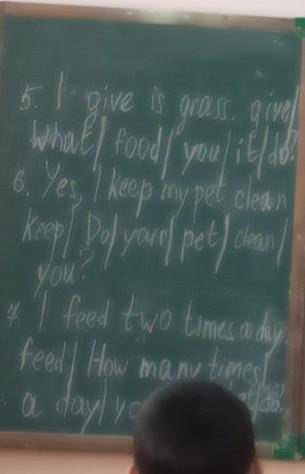 5. I give is grass. give/
What/ food/ you/ it/ do?
6. Yes, I keep my pet clean
keep/ Do/ your/ pet/ clean/
you?
7 I feed two times a day.
feed/ How many times/
a day/